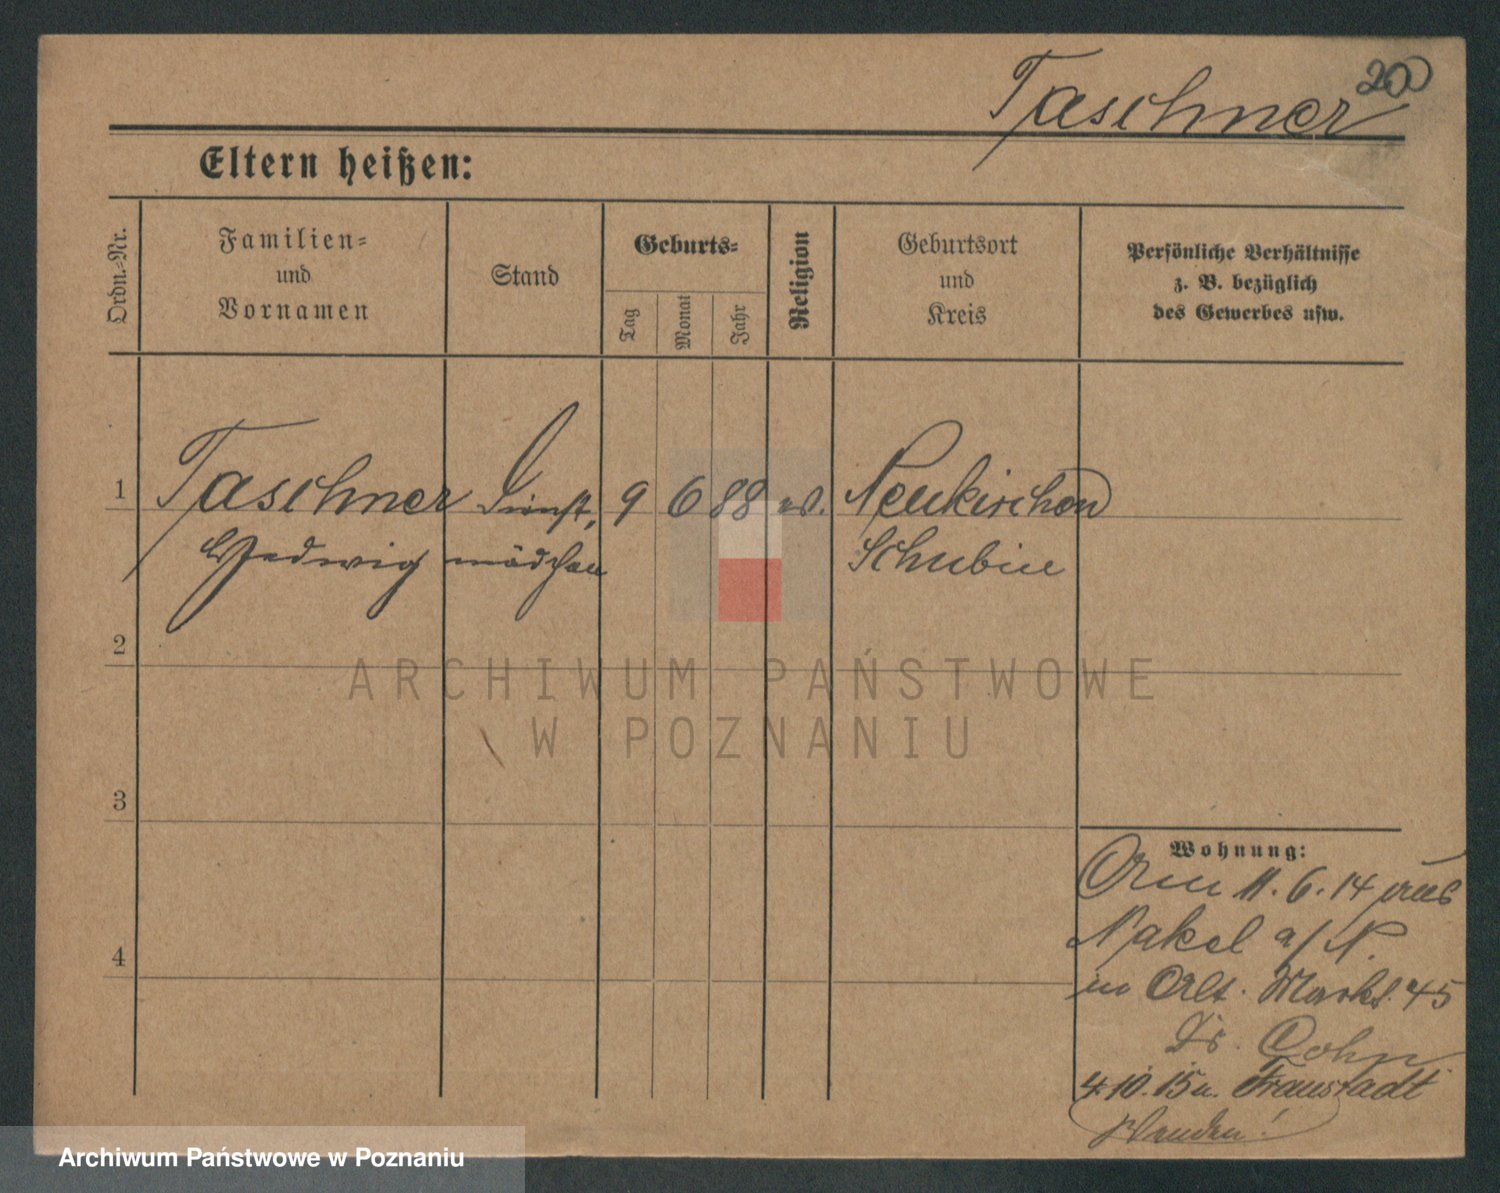 200
Taschner
Eltern heißen:
Ordn.-Nr.
Familien-
und
Vornamen
Stand
Geburts-
Tag
Monat
Jahr
Religion
Geburtsort
und
Kreis
Persönliche Verhältnisse
z. B. bezüglich
des Gewerbes usw.
1 Taschner Dienst, 9 6 88 Neukirchen
Hedwig mädchen Schubin
2
ARCHIWUM PAŃSTWOWE
W POZNANIU
3
4
Wohnung:
Am 11.6.14 aus
Nakel a/N.
in Alt. Markt. 45
Dr. Cohn
4.10.15 n. Fraustadt
Wenden!
Archiwum Państwowe w Poznaniu